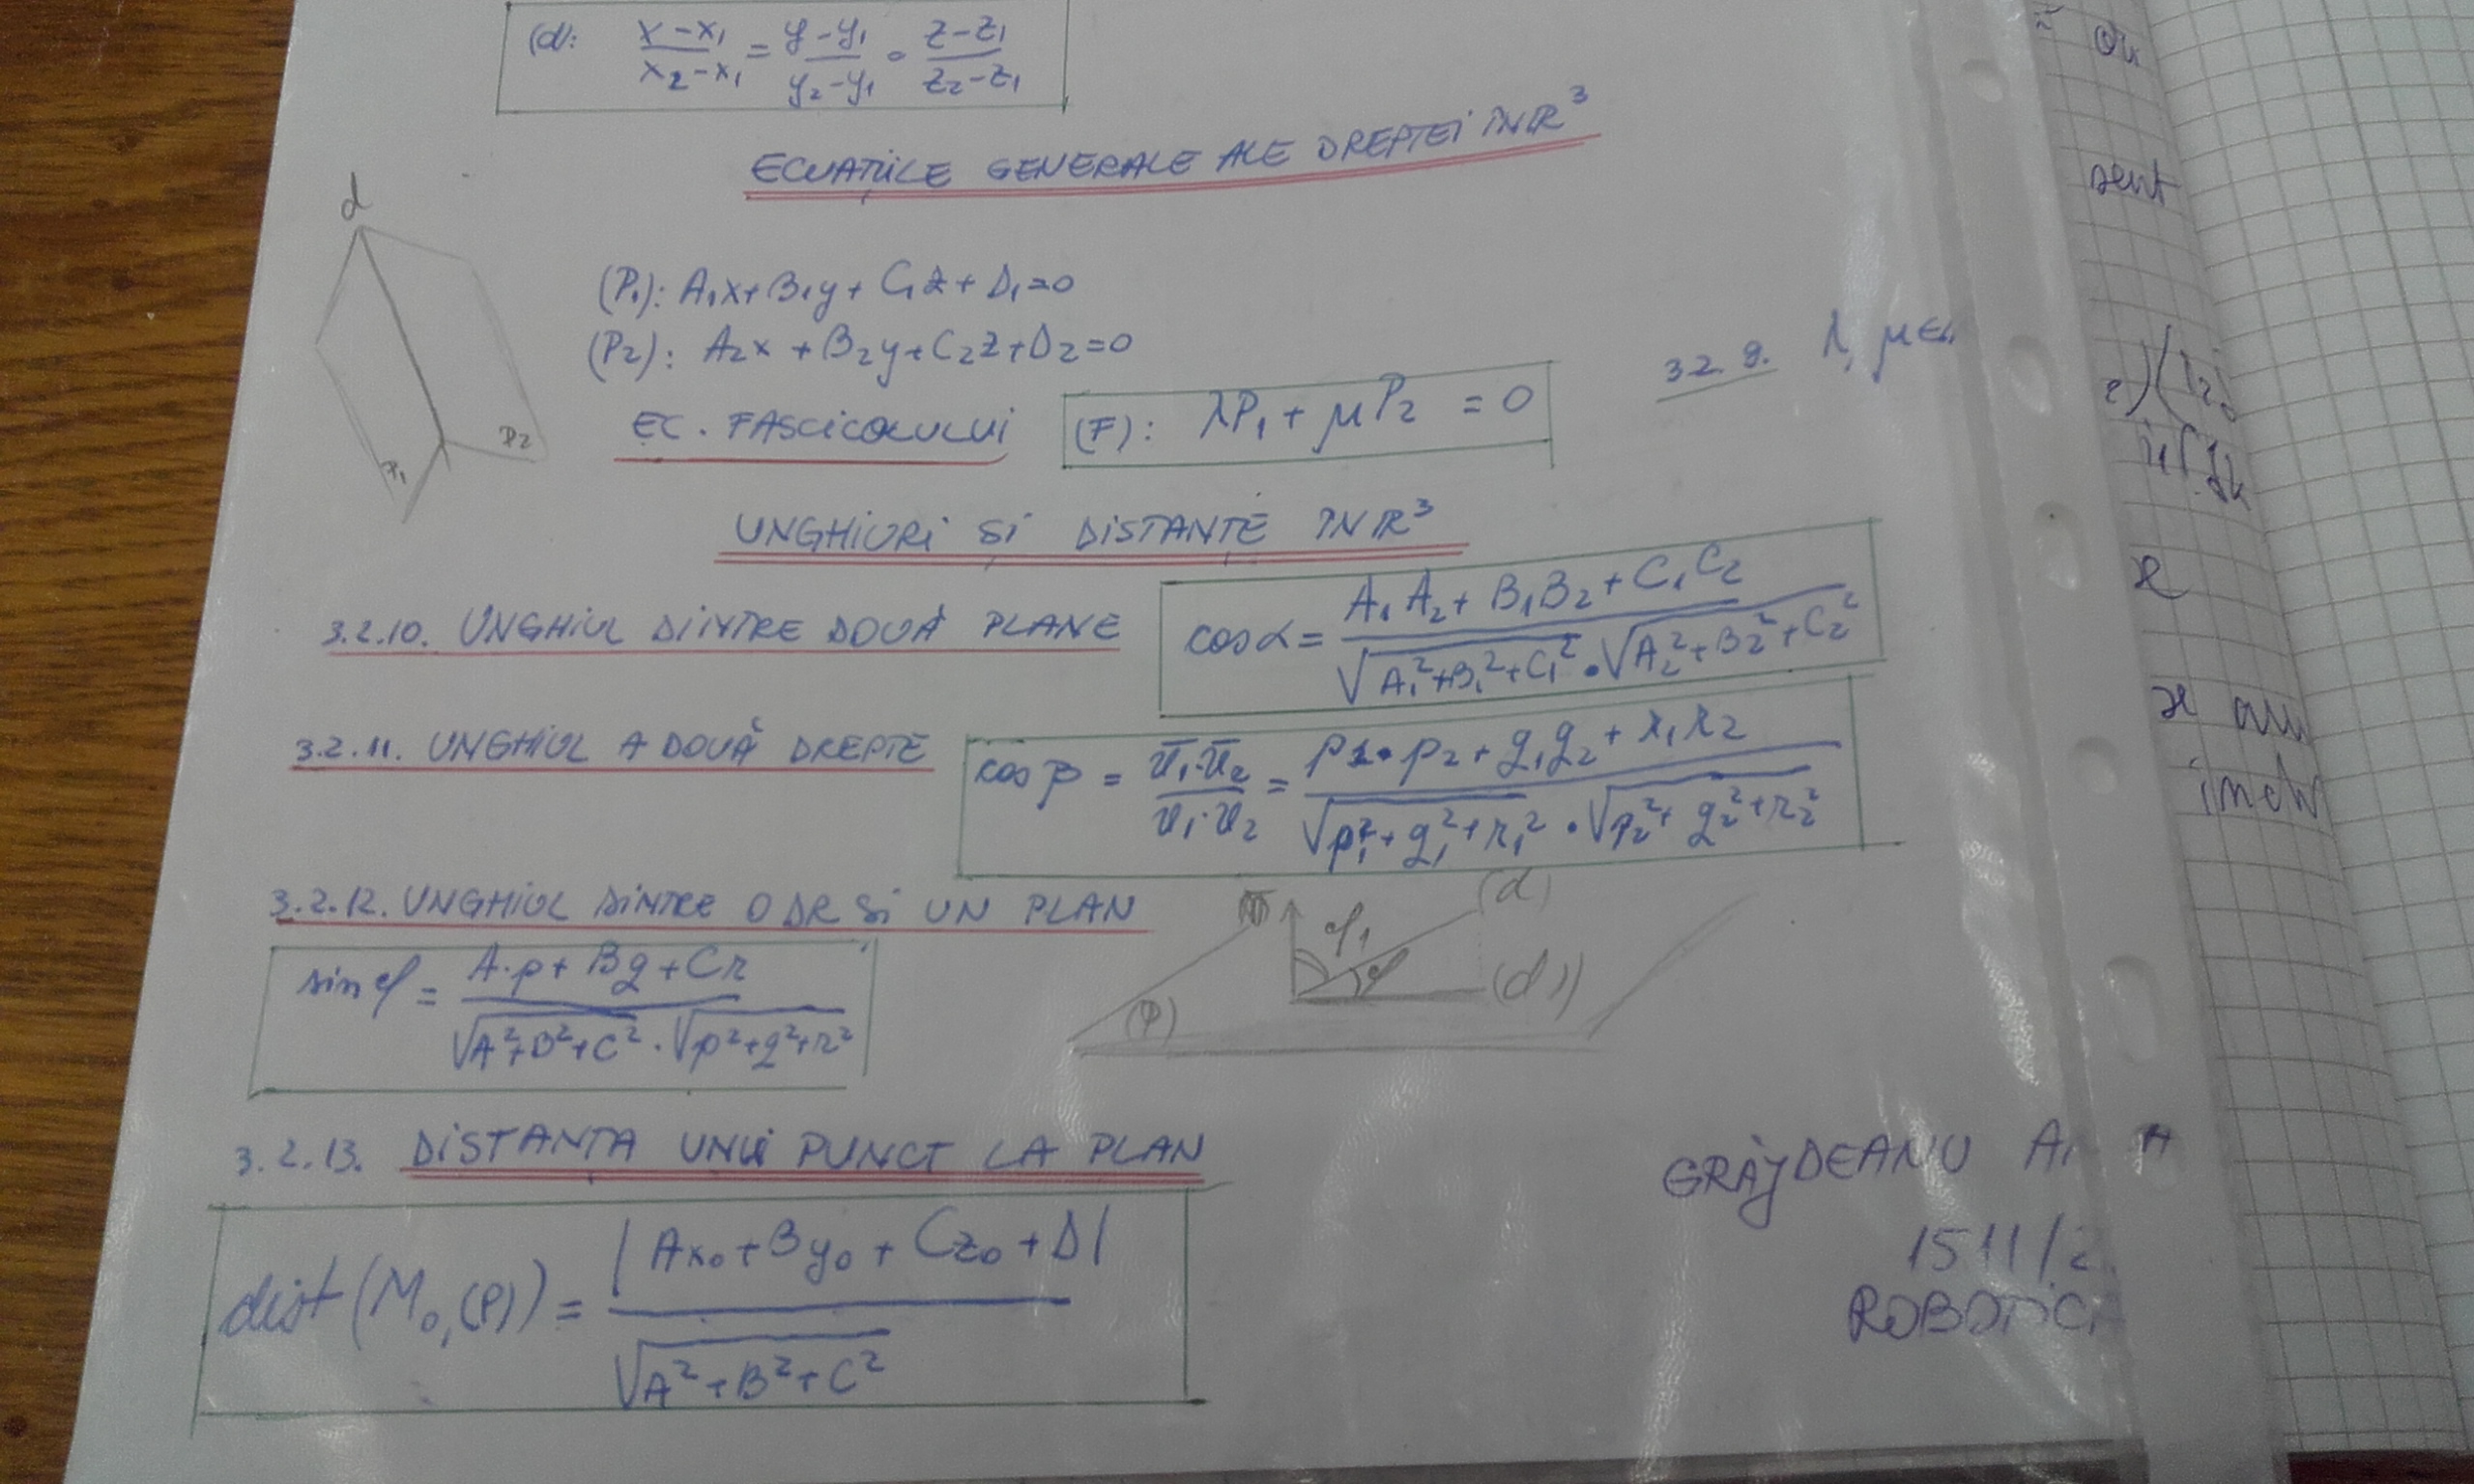 (d): x-x₁/x₂-x₁ = y-y₁/y₂-y₁ = z-z₁/z₂-z₁
ECUAȚIILE GENERALE ALE DREPTEI ÎN ℝ³
d
(P₁): A₁x+B₁y+C₁z+D₁=0
(P₂): A₂x+B₂y+C₂z+D₂=0
P₁ P₂
EC. FASCICOLULUI (F): λP₁+μP₂ = 0 3.2.9. λ, μ∈
UNGHIURI ȘI DISTANȚE ÎN ℝ³
3.2.10. UNGHIUL DIINTRE DOUĂ PLANE cos α = A₁A₂+B₁B₂+C₁C₂/√A₁²+B₁²+C₁² · √A₂²+B₂²+C₂²
3.2.11. UNGHIUL A DOUĂ DREPTE cos β = v̅₁·v̅₂/v₁·v₂ = p₁·p₂+q₁q₂+r₁r₂/√p₁²+q₁²+r₁² · √p₂²+q₂²+r₂²
3.2.12. UNGHIUL DINTRE O DR ȘI UN PLAN
sin φ = A·p+Bq+Cr/√A²+B²+C² · √p²+q²+r²
φ₁ (d)
φ (d')
(P)
3.2.13. DISTANȚA UNUI PUNCT LA PLAN
dist(M₀,(P)) = |Ax₀+By₀+Cz₀+D|/√A²+B²+C²
GRĂJDEANU
1511/2
ROBOTICA
sunt